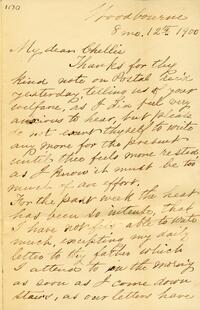 Woodbourne
8 mo. 12th 1900
My dear Chellie
Thanks for thy
kind note on Postal Rec'd
yesterday, telling us of your
welfare, as I did feel very
anxious to hear, but please
do not exert thyself to write
any more for the present
until thee feels more rested,
as I know it must be too
much of an effort.
For the past week the heat
has been so intense, that
I have not felt able to write
much, excepting my daily
letter to thy father which
I attend to in the morning
as soon as I come down
stairs, as our letters have